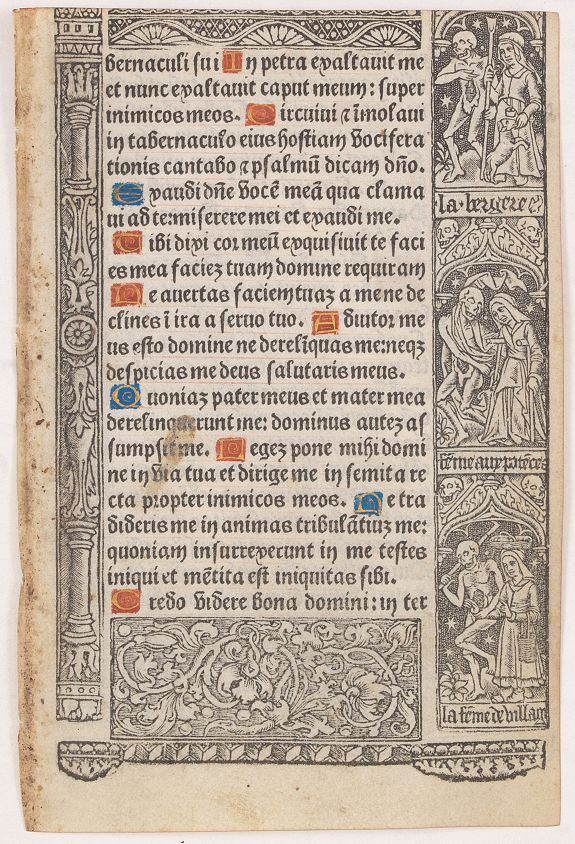 bernaculi sui In petra exaltavit me
et nunc exaltauit caput meum: super
inimicos meos. Circuiui ⁊ īmolaui
in tabernaculo eius hostiam vocifera
tionis cantabo ⁊ psalmū dicam dn̄o.
Exaudi dn̄e vocē meā qua clama
ui ad te: miserere mei et exaudi me.
Tibi dixi cor meū exquisiuit te faci
es mea faciez tuam domine requiram
Ne auertas faciem tuaz a me ne de
clines ī ira a seruo tuo. Adiutor me
us esto domine ne derelīquas me: neqz
despicias me deus salutaris meus.
Quoniaz pater meus et mater mea
derelinquerunt me: dominus autez as
sumpsit me. Legez pone mihi domi
ne in via tua et dirige me in semita re
cta propter inimicos meos. Ne tra
dideris me in animas tribulātiuz me:
quoniam insurrexerunt in me testes
iniqui et mētita est iniquitas sibi.
Credo videre bona domini: in ter
la bergere
la feme de village